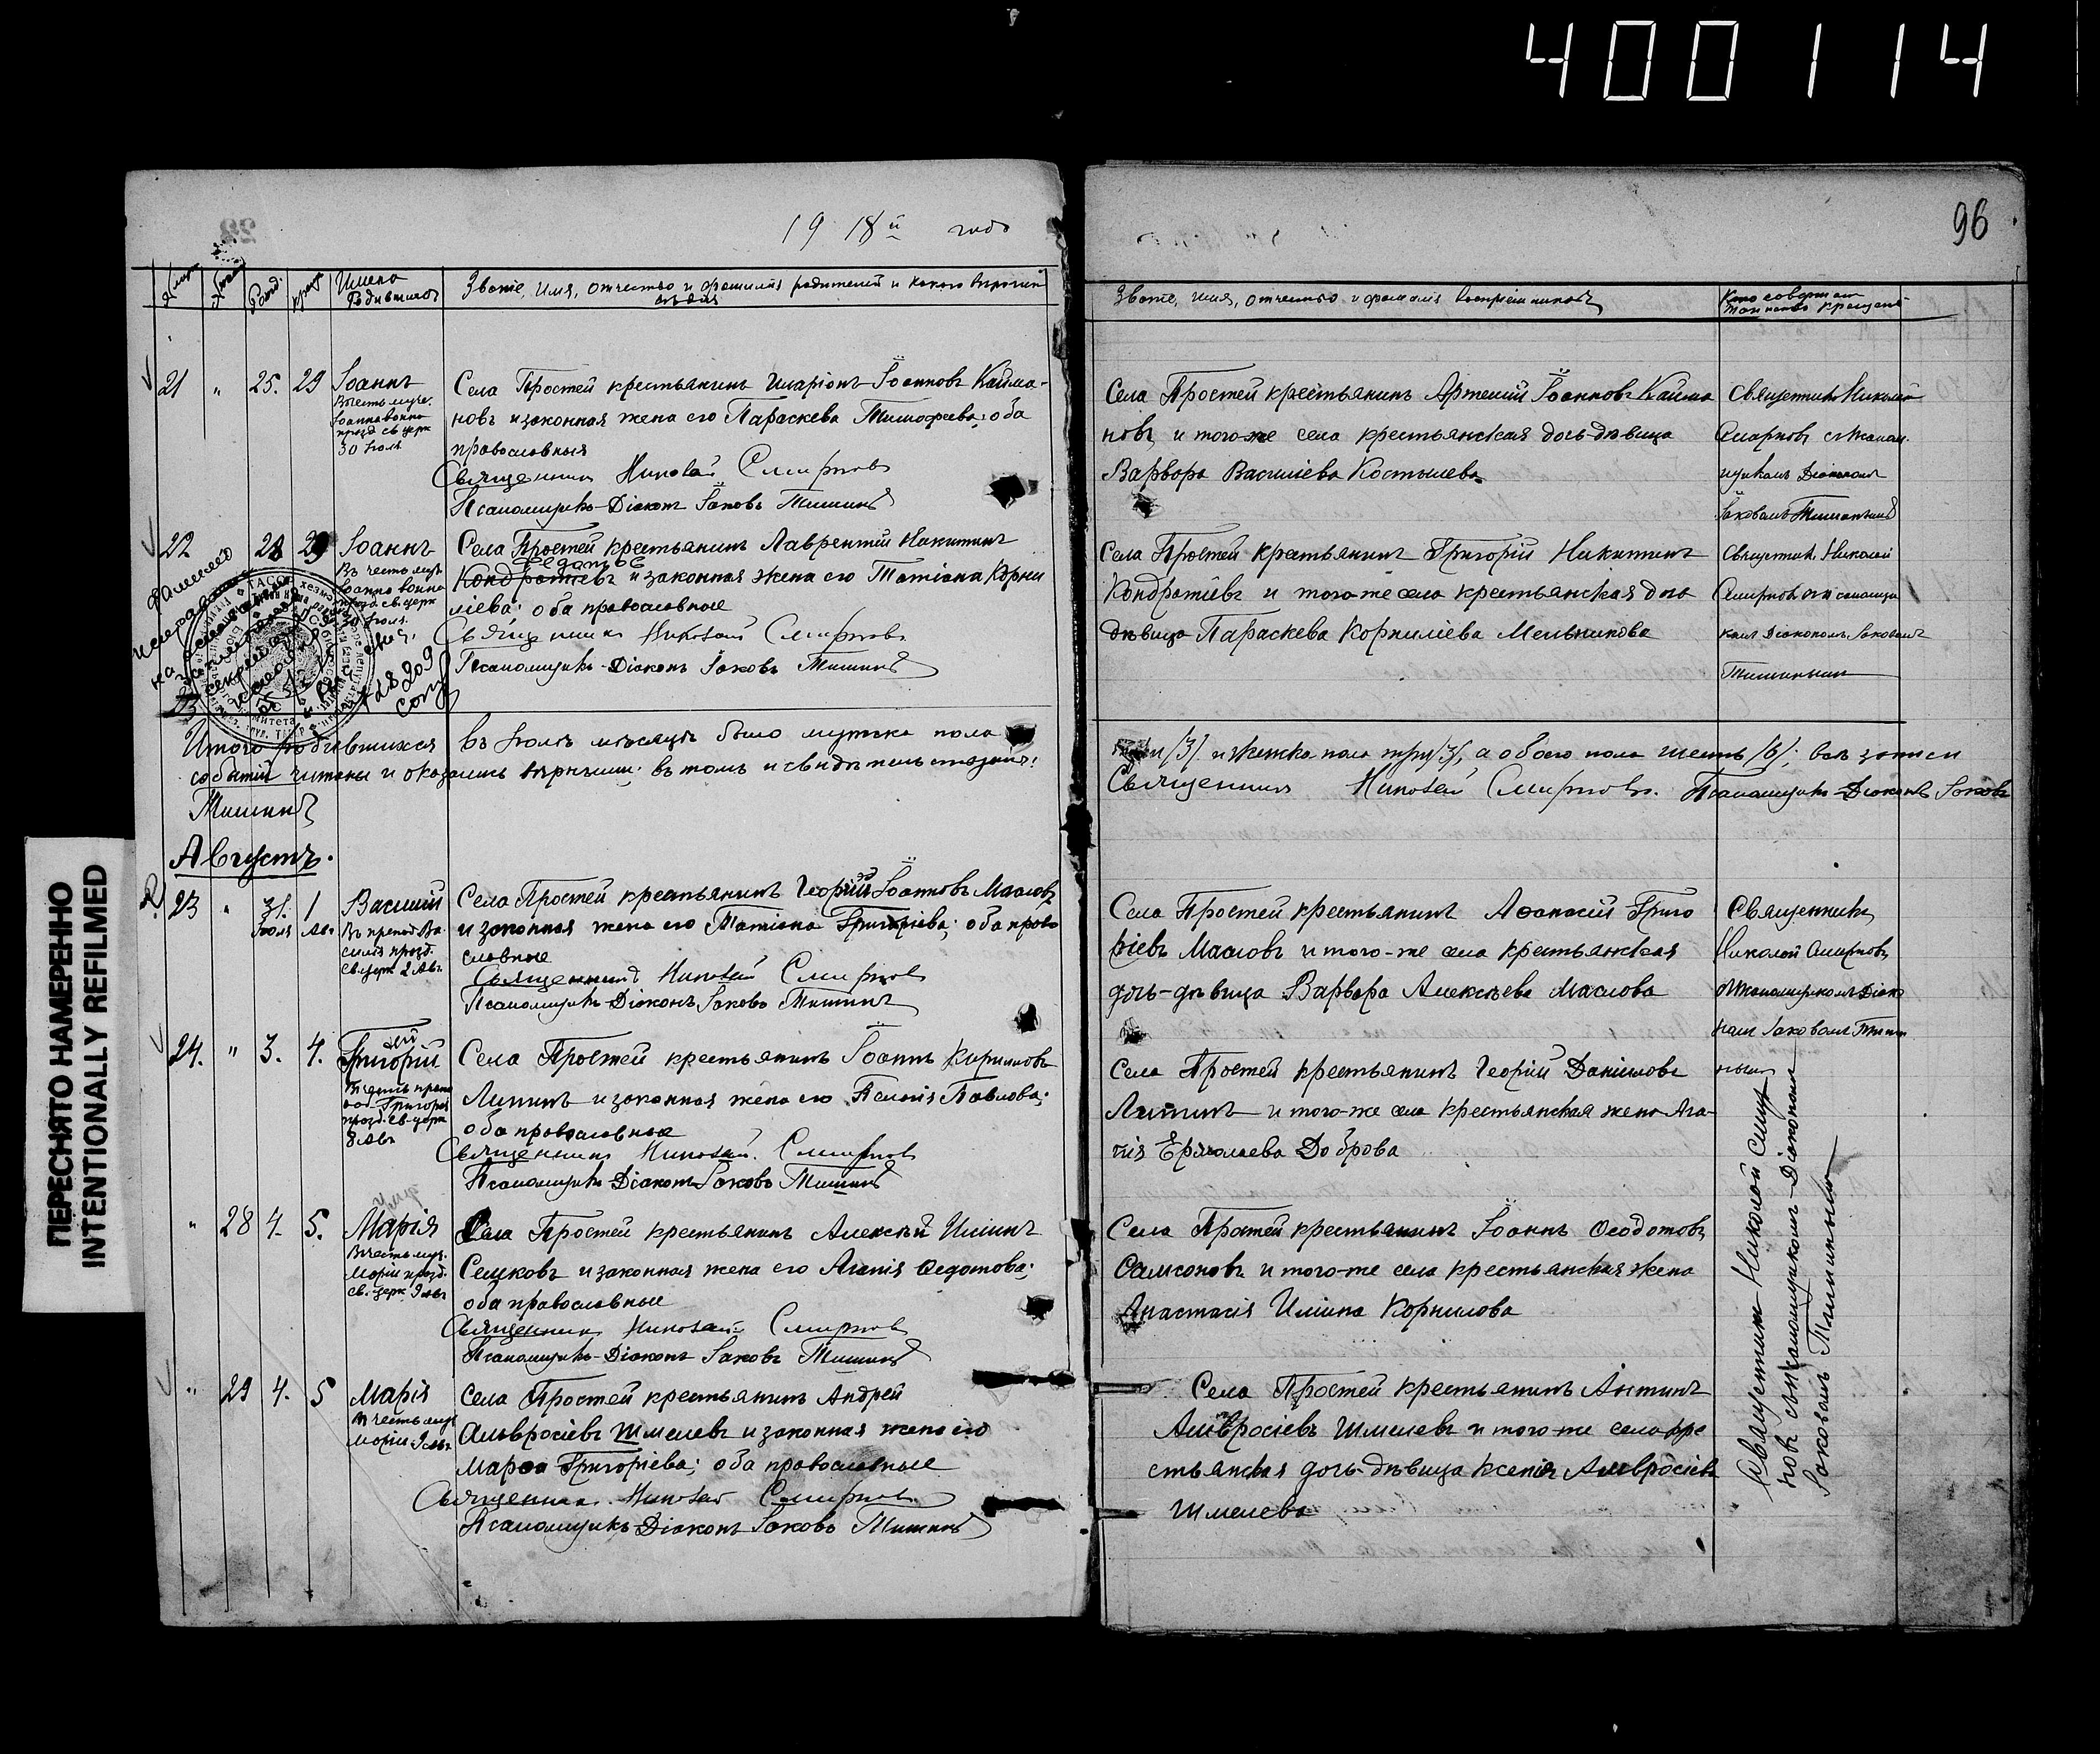 400114
96
1918й года
Имена родившихся
Званіе, имя, отчество и фамилія родителей и какого вѣроисповѣданія
Званіе, имя, отчество и фамилія воспріемниковъ
Кто совершалъ таинство крещенія
21 " 25. 29 Іоаннъ
Въ честь муч.
Іоанна воина
празд. св. церк
30 Іюля
Села Простей крестьянинъ Иларіонъ Іоанновъ Кайма-
новъ и законная жена его Параскева Тимофеева; оба
православныя
Священникъ Николай Смирновъ
Псаломщикъ-Діаконъ Іаковъ Тишинъ
Села Простей крестьянинъ Артемій Іоанновъ Кайма
новъ и того-же села крестьянская дочь-дѣвица
Варвара Василіева Костылева
Священникъ Николай
Смирновъ съ псалом-
щикомъ Діакономъ
Іаковомъ Тишинымъ
22 28 29 Іоаннъ
Въ честь муч
Іоанна воина
празд. св. церк
30 Іюля.
Села Простей крестьянинъ Лаврентій Никитинъ
Кондратіевъ и законная жена его Татіана Корни
ліева; оба православные
Священникъ Николай Смирновъ
Псаломщикъ-Діаконъ Іаковъ Тишинъ
Села Простей крестьянинъ Григорій Никитинъ
Кондратіевъ и того-же села крестьянская дочь
дѣвица Параскева Корниліева Мельникова
Священникъ Николай
Смирновъ съ псаломщи
комъ Діакономъ Іаковомъ
Тишинымъ
Фамилию
исправлено
на основании
23
Итого родившихся въ Іюлѣ мѣсяцѣ было мужска пола
три /3/. и женска пола три /3/, а обоего пола шесть /6/; всѣ записи
событій читаны и оказались вѣрными; въ томъ и свидѣтельствуемъ:
Священникъ Николай Смирновъ. Псаломщикъ-Діаконъ Іаковъ
Тишинъ
Августъ.
23 " 31. Іюля 1 Авг Василій
Въ препод. Ва
силія празд.
св. церк 2 Авг.
Села Простей крестьянинъ Георгій Іоанновъ Масловъ
и законная жена его Татіана Григоріева; оба право
славные
Священникъ Николай Смирновъ
Псаломщикъ-Діаконъ Іаковъ Тишинъ
Села Простей крестьянинъ Аѳанасій Григо
ріевъ Масловъ и того-же села крестьянская
дочь-дѣвица Варвара Алексѣева Маслова
Священникъ
Николай Смирновъ
съ псаломщикомъ Діако
номъ Іаковомъ Тиши
нымъ
24. " 3. 4. Григорій
празд. св. церк
8 Авг.
Села Простей крестьянинъ Іоаннъ Кирилловъ
Липинъ и законная жена его Пелагія Павлова;
оба православные
Священникъ Николай Смирновъ
Псаломщикъ-Діаконъ Іаковъ Тишинъ
Села Простей крестьянинъ Георгій Даниловъ
Липинъ и того-же села крестьянская жена Ага-
пія Ермолаева Доброва
" 28 4. 5. Марія
Въ честь муч.
Маріи празд.
св. церк 9 авг
Села Простей крестьянинъ Алексѣй Илиинъ
Селиковъ и законная жена его Агапія Ѳедотова;
оба православные
Священникъ Николай Смирновъ
Псаломщикъ-Діаконъ Іаковъ Тишинъ
Села Простей крестьянинъ Іоаннъ Ѳеодотовъ
Самсоновъ и того-же села крестьянская жена
Анастасія Илиина Корнилова
" 29 4. 5 Марія
въ честь муч
Маріи 9 авг
Села Простей крестьянинъ Андрей
Амвросіевъ Шмелевъ и законная жена его
Марѳа Григоріева; оба православные
Священникъ Николай Смирновъ
Псаломщикъ-Діаконъ Іаковъ Тишинъ
Села Простей крестьянинъ Антипъ
Амвросіевъ Шмелевъ и того-же села кре
стьянская дочь-дѣвица Ксенія Амвросіева
Шмелева
Священникъ Николай Смир
новъ съ псаломщикомъ-Діакономъ
Іаковомъ Тишинымъ
ПЕРЕСНЯТО НАМЕРЕННО
INTENTIONALLY REFILMED